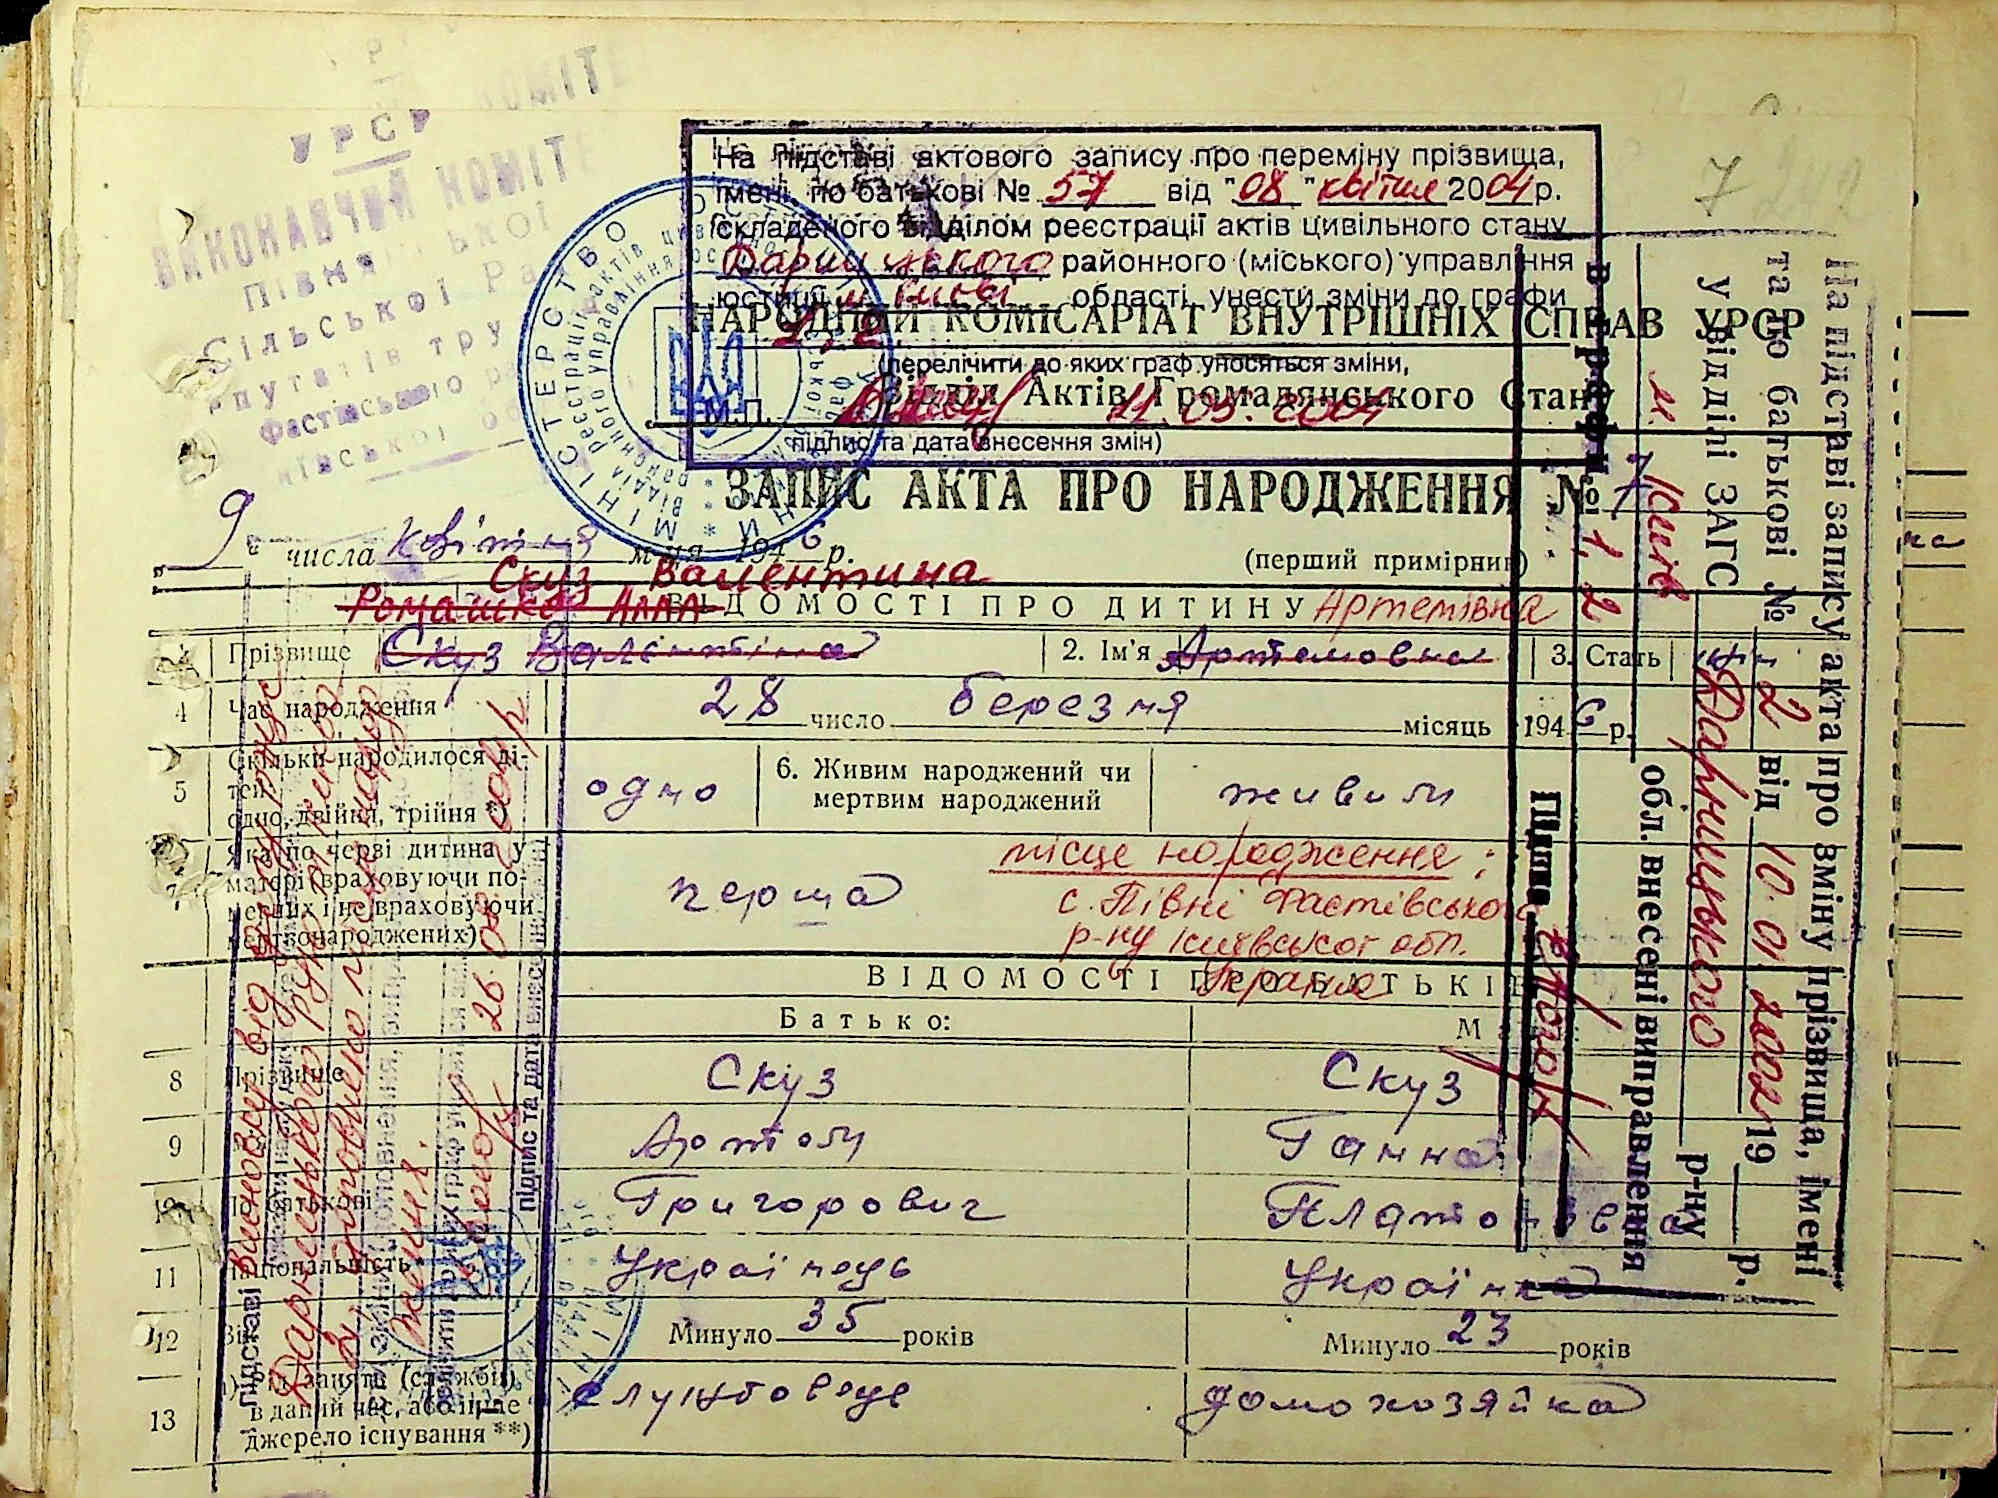 УРСР
ВИКОНАВЧИЙ КОМІТЕ
Півнянської
Сільської Ра
путатів тру
Фастівського р
На підставі актового запису про переміну прізвища,
імені, по батькові № 57 від "08" квітня 2004 р.
складеного відділом реєстрації актів цивільного стану
Дарницького районного (міського) управління
юстиції м. Києві області, унести зміни до графи
1, 2
(перелічити до яких граф уносяться зміни,
М.П. 11.05.2004
підпис та дата внесення змін)
7
НАРОДНИЙ КОМІСАРІАТ ВНУТРІШНІХ СПРАВ УРСР
Відділ Актів Громадянського Стану
ЗАПИС АКТА ПРО НАРОДЖЕННЯ № 7
„ 9 " числа квітня м-ця 1946 р. (перший примірник)
Скуз Валентина
Ромашко Алла
ВІДОМОСТІ ПРО ДИТИНУ Артемівна
Прізвище Скуз Валентіна 2. Ім'я Артемовна 3. Стать
4 Час народження 28 число березня місяць 1946 р.
5 Скільки народилося дітей одно, двійня, трійня *) одно 6. Живим народжений чи мертвим народжений живим
7 Яка по черві дитина у матері (враховуючи померлих і не враховуючи мертвонароджених) перша
місце народження:
с. Півні Фастівського
р-ну Київської обл.
Україна
ВІДОМОСТІ ПРО БАТЬКІВ
Батько:
8 Прізвище Скуз Скуз
9 Артом Ганна
10 По батькові Григорович Платонівна
11 Національність Українець Українка
12 Минуло 35 років Минуло 23 років
13 Рід занять (служби) в даний час, або інше джерело існування **) службовець домохозяйка
На підставі запису акта про зміну прізвища, імені
та по батькові № 2 від 10.01.2002 19 р.
у відділі ЗАГС Дарницького р-ну
м. Київ обл. внесені виправлення
в графи 1, 2
Підпис
підставі висновку від
Дарницького
доповнено
26.03.2004р
підпис та дата внесення